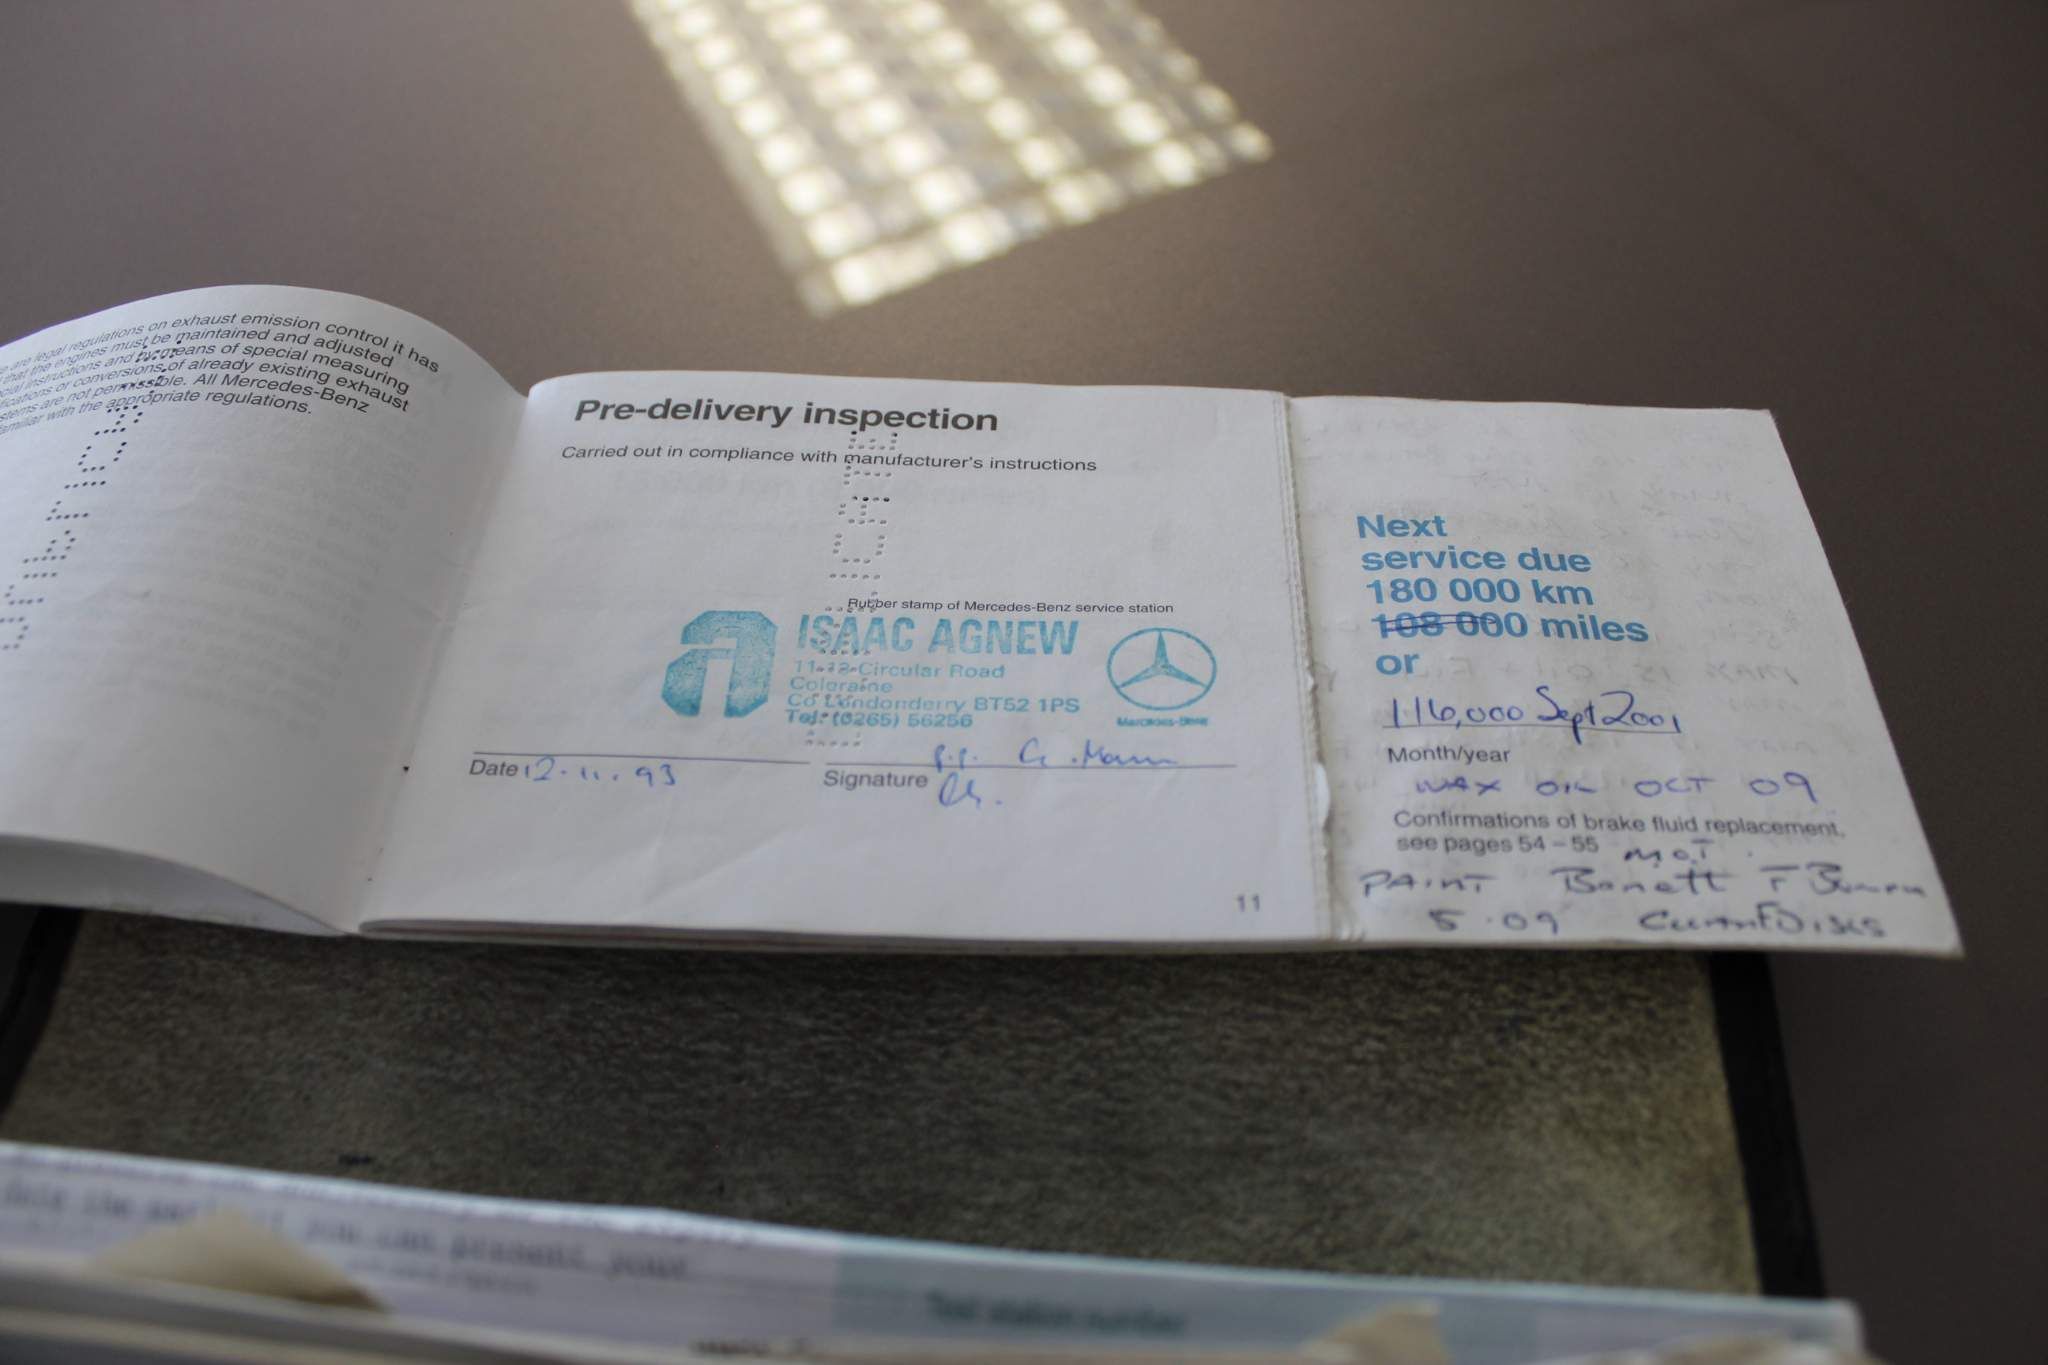 are legal regulations on exhaust emission control it has
that the engines must be maintained and adjusted
instructions and by means of special measuring
or conversions of already existing exhaust
are not permissible. All Mercedes-Benz
familiar with the appropriate regulations.
Pre-delivery inspection
Carried out in compliance with manufacturer's instructions
Rubber stamp of Mercedes-Benz service station
ISAAC AGNEW
Circular Road
Coleraine
Co Londonderry BT52 1PS
Tel: (0265) 56256
Mercedes-Benz
Date 12.11.93
Signature p.p. G. Mann
11
Next
service due
180 000 km
108 000 miles
or
116,000 Sept 2001
Month/year
WAX OIL OCT 09
Confirmations of brake fluid replacement,
see pages 54 – 55
M.O.T.
PAINT Bonett F
5.09
Test station number